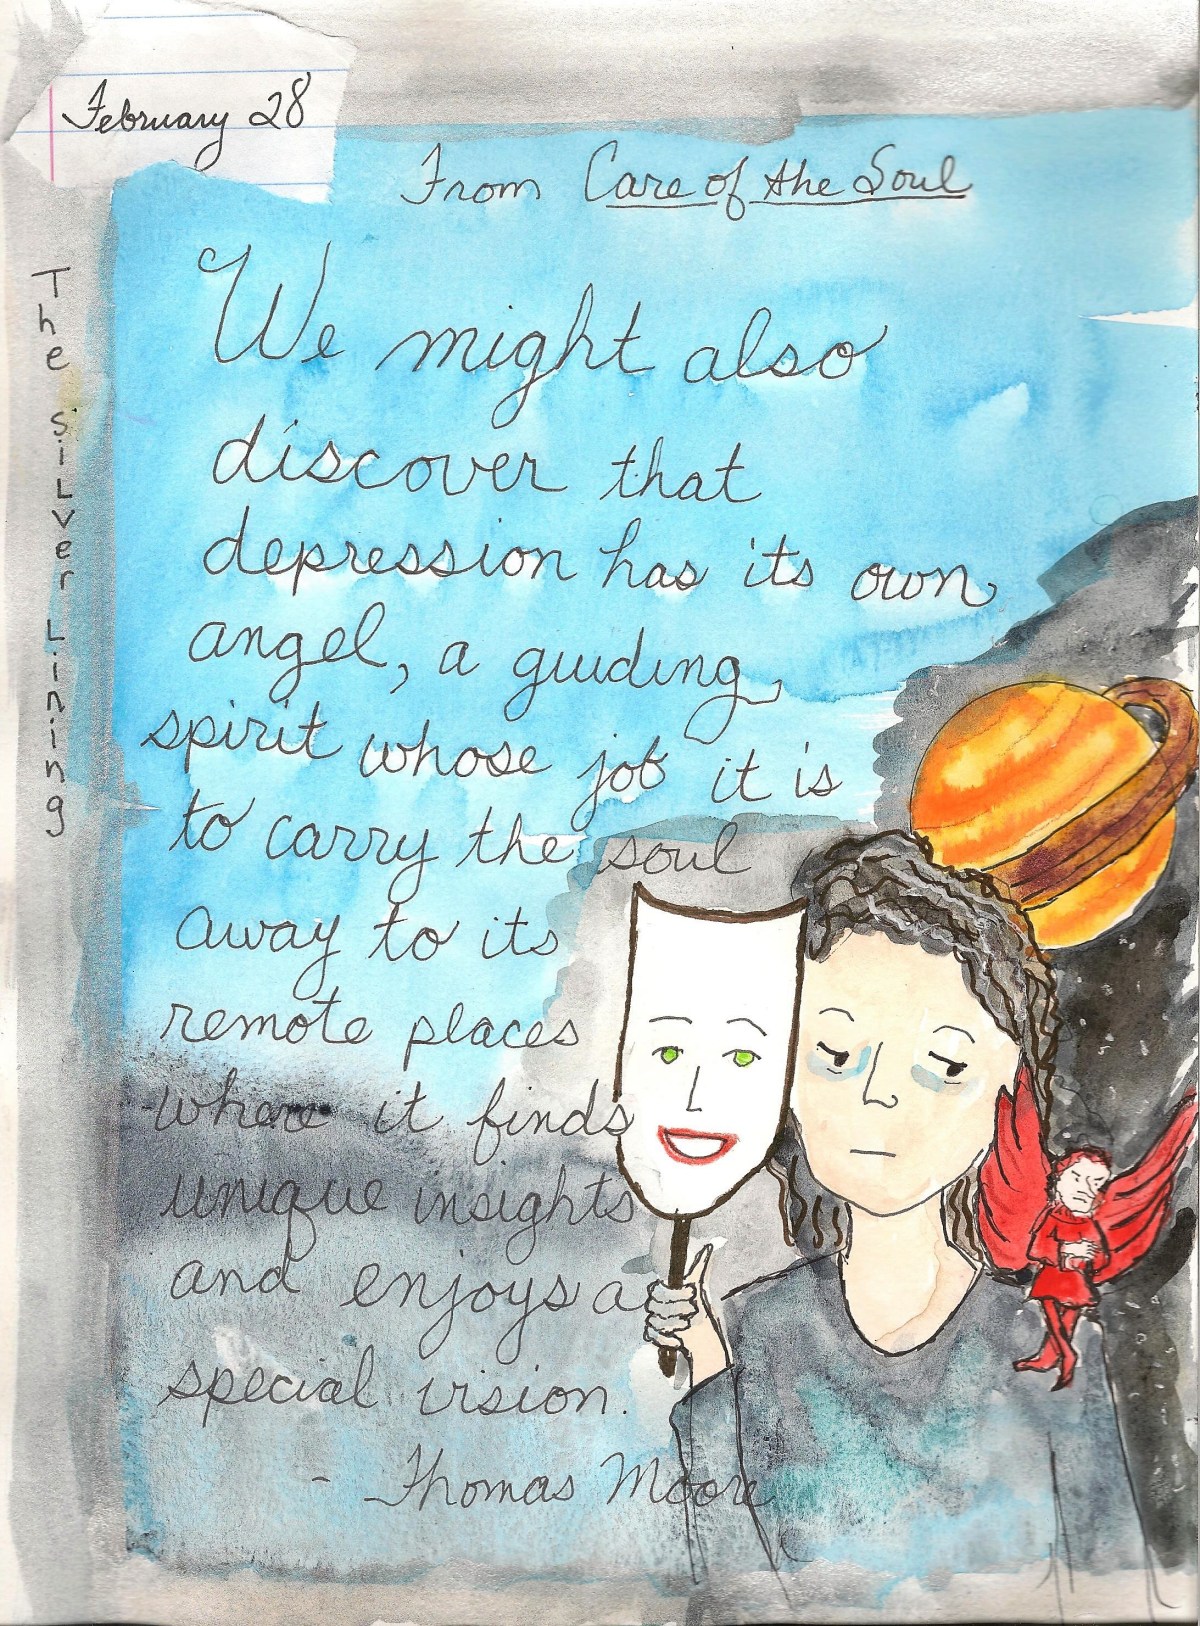 February 28
From Care of the Soul
The Silver Lining
We might also
discover that
depression has its own
angel, a guiding
spirit whose job it is
to carry the soul
away to its
remote places
where it finds
unique insights
and enjoys a
special vision.
- Thomas Moore